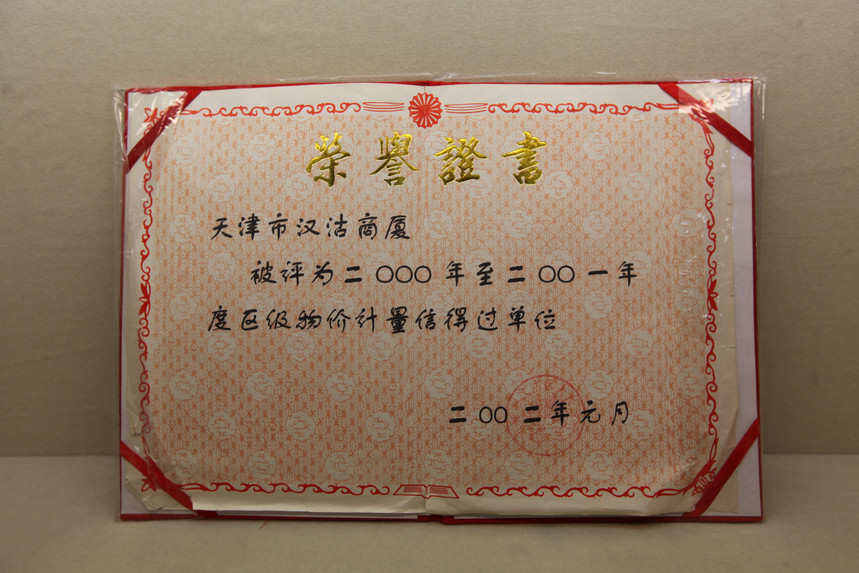 榮譽證書
天津市汉沽商厦
被评为二〇〇〇年至二〇〇一年
度区级物价计量信得过单位
二〇〇二年元月